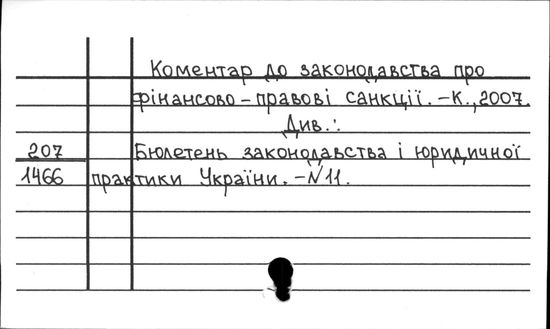 Коментар до законодавства про
фінансово-правові санкції.-К.,2007.
Див.:
207 Бюлетень законодавства і юридичної
1466 практики України.-№11.